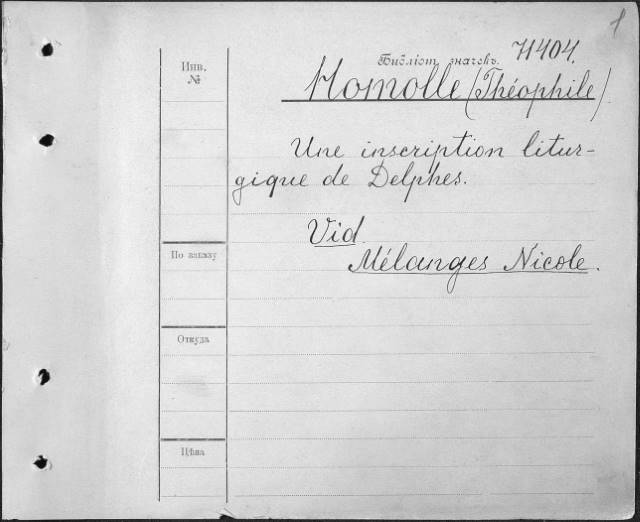 1
Библіот. значекъ. 71404.
Инв.
№
Homolle (Théophile)
Une inscription litur-
gique de Delphes.
Vid.
Mélanges Nicole.
По заказу
Откуда
Цѣна